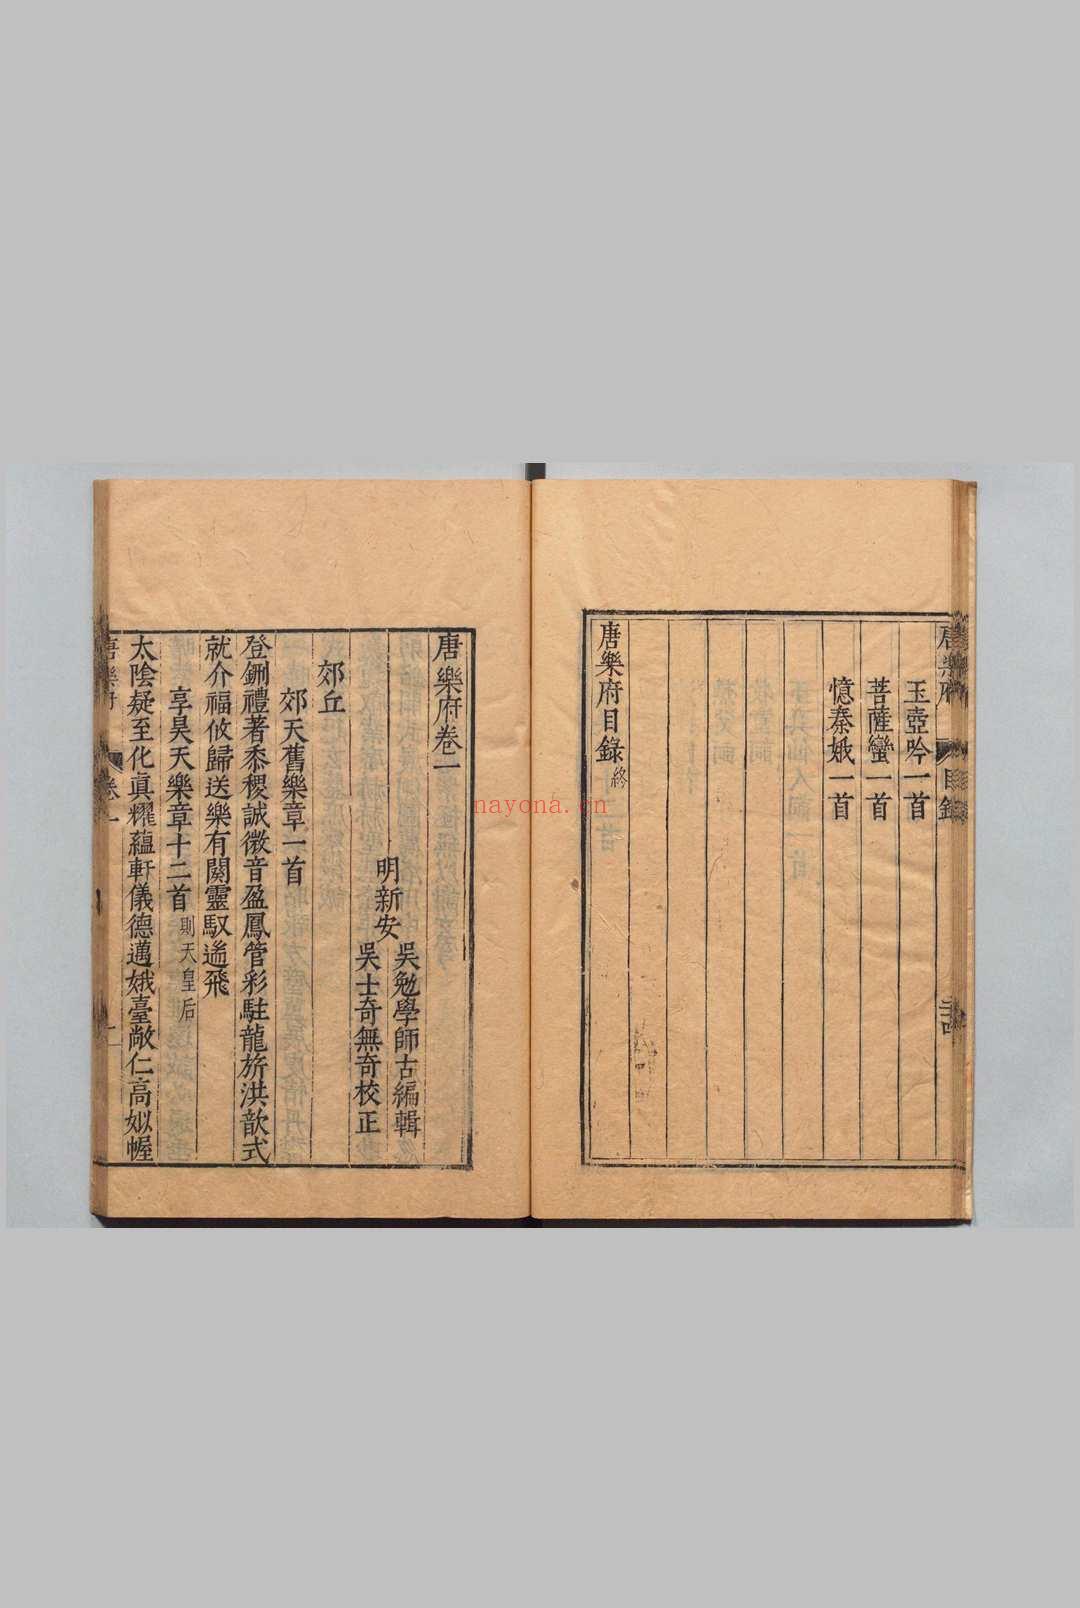 玉壺吟一首
菩薩蠻一首
憶秦娥一首
唐樂府目錄終
唐樂府卷一
明新安
吳勉學師古編輯
吳士奇無奇校正
郊丘
郊天舊樂章一首
登鉶禮著黍稷誠徽音盈鳳管彩駐龍旂洪歆式
就介福攸歸送樂有闋靈馭遙飛
享昊天樂章十二首則天皇后
太陰疑至化真耀蘊軒儀德邁娥臺敞仁高姒幄
卷一
nayona.cn